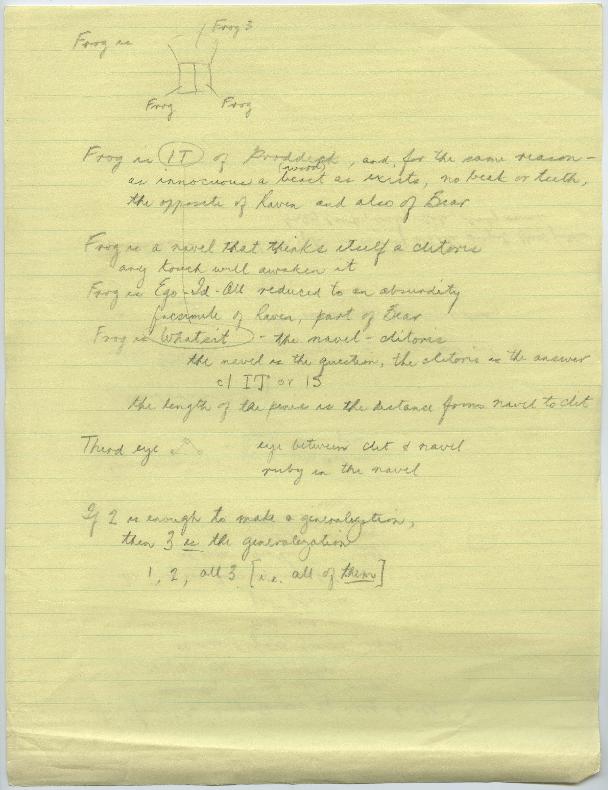 Frog 3
Frog is
Frog Frog
Frog is IT of, and, for the same reason -
(word)
as innocuous a beast as exists, no beak or teeth,
the opposite of Raven and also of Bear
Frog is a navel that thinks itself a clitoris
any touch will awaken it
Frog is Ego-Id-All reduced to an absurdity
facsimile of Raven, part of Bear
Frog is Whatsit - the navel-clitoris
the navel is the question, the clitoris is the answer
c/ IT or IS
the length of the penis is the distance from navel to clit
Third eye eye between clit & navel
ruby in the navel
If 2 is enough to make a generalization,
then 3 is the generalization
1, 2, all 3 [i.e. all of them]